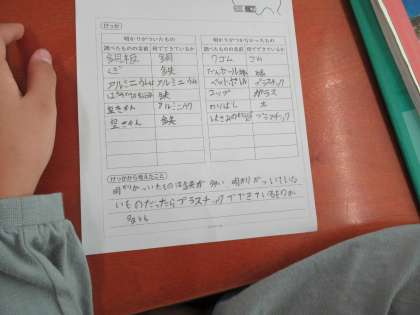 けっか
明かりがついたもの
明かりがつかなかったもの
調べたものの名前 何でできているか
調べたものの名前 何でできているか
銅板 銅
ワゴム ゴム
くぎ 鉄
だんボール 紙
アルミニウムはく アルミニウム
ペットボトル プラスチック
鉄
コップ ガラス
空きかん アルミニウム
わりばし 木
空きかん 鉄
プラスチック
けっかから考えたこと
明かりがついたものは金ぞくが多い 明かりがついていな
いものだったらプラスチックでできているものが